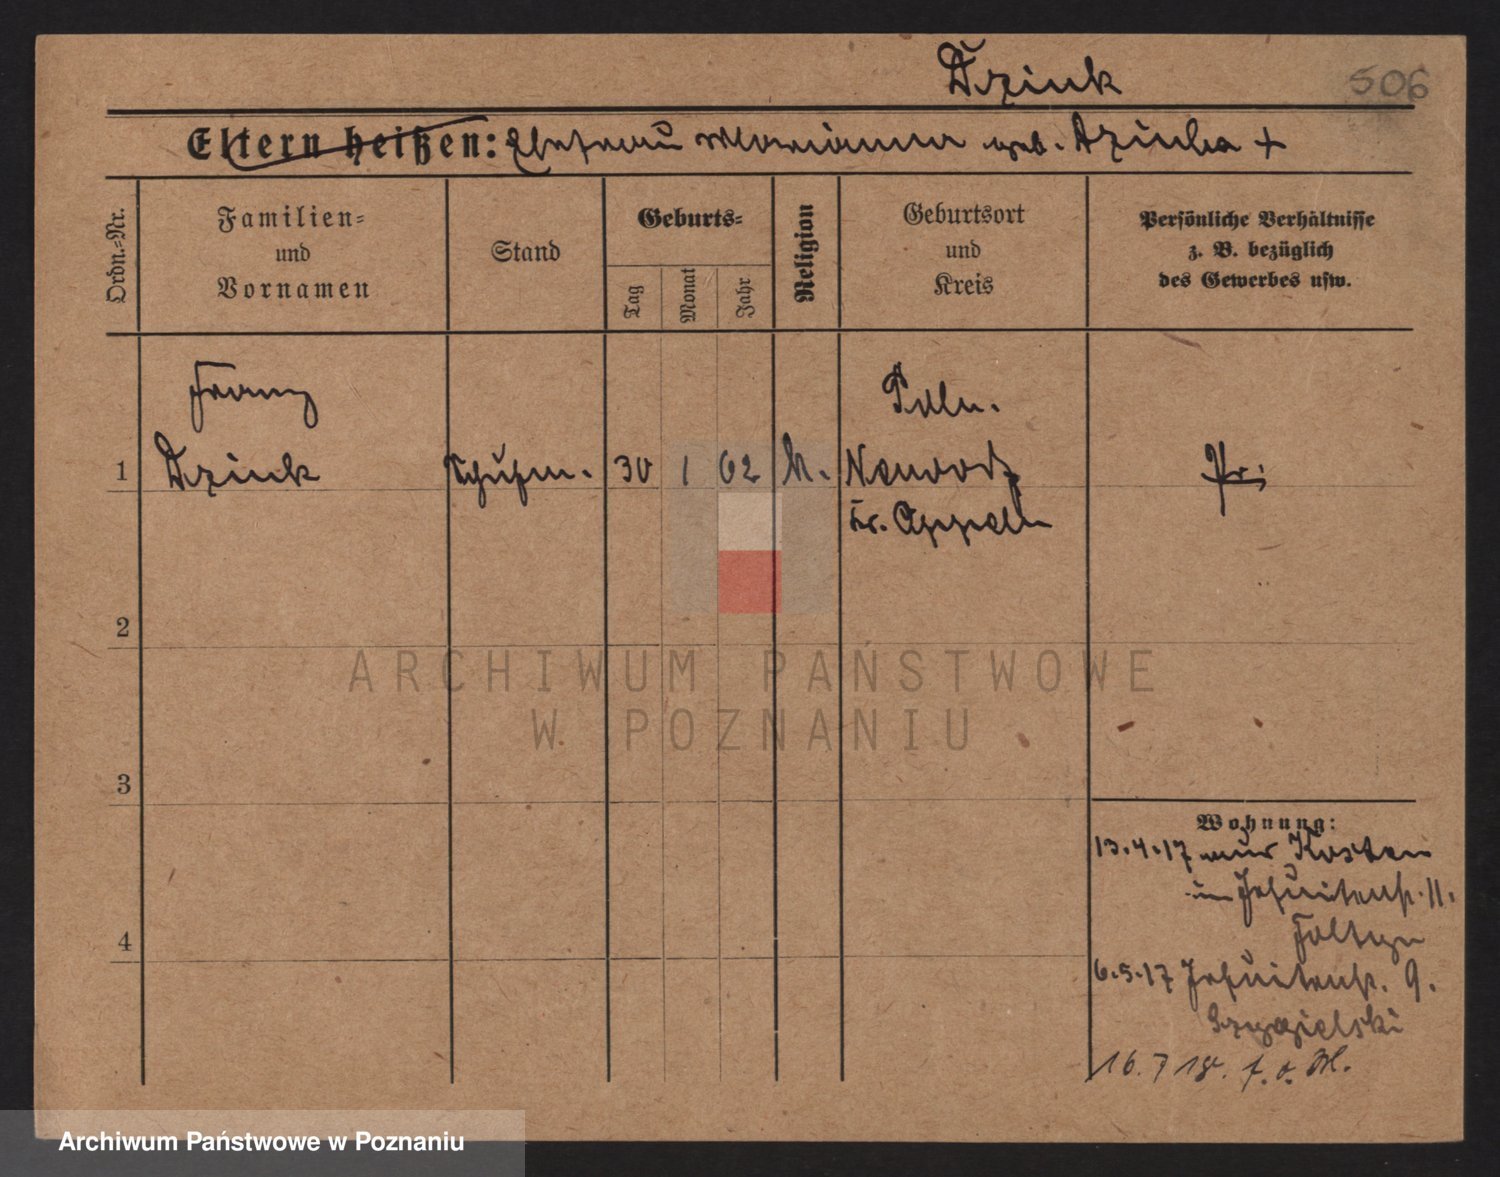 Dzink
506
Eltern heißen: Ehefrau Marianna geb. Dziuba +
Ordn.=Nr.
Familien=
und
Vornamen
Stand
Geburts=
Tag
Monat
Jahr
Religion
Geburtsort
und
Kreis
Persönliche Verhältnisse
z. B. bezüglich
des Gewerbes usw.
Franz
Poln.
1 Dzink Schuhm. 30 1 62 k. Neudorf
Kr. Oppeln
2
3
4
Wohnung:
13.4.17 aus Kosten
in Jesuitenstr. 11.
6.5.17 Jesuitenstr. 9.
16.7 18.
ARCHIWUM PAŃSTWOWE
W POZNANIU
Archiwum Państwowe w Poznaniu